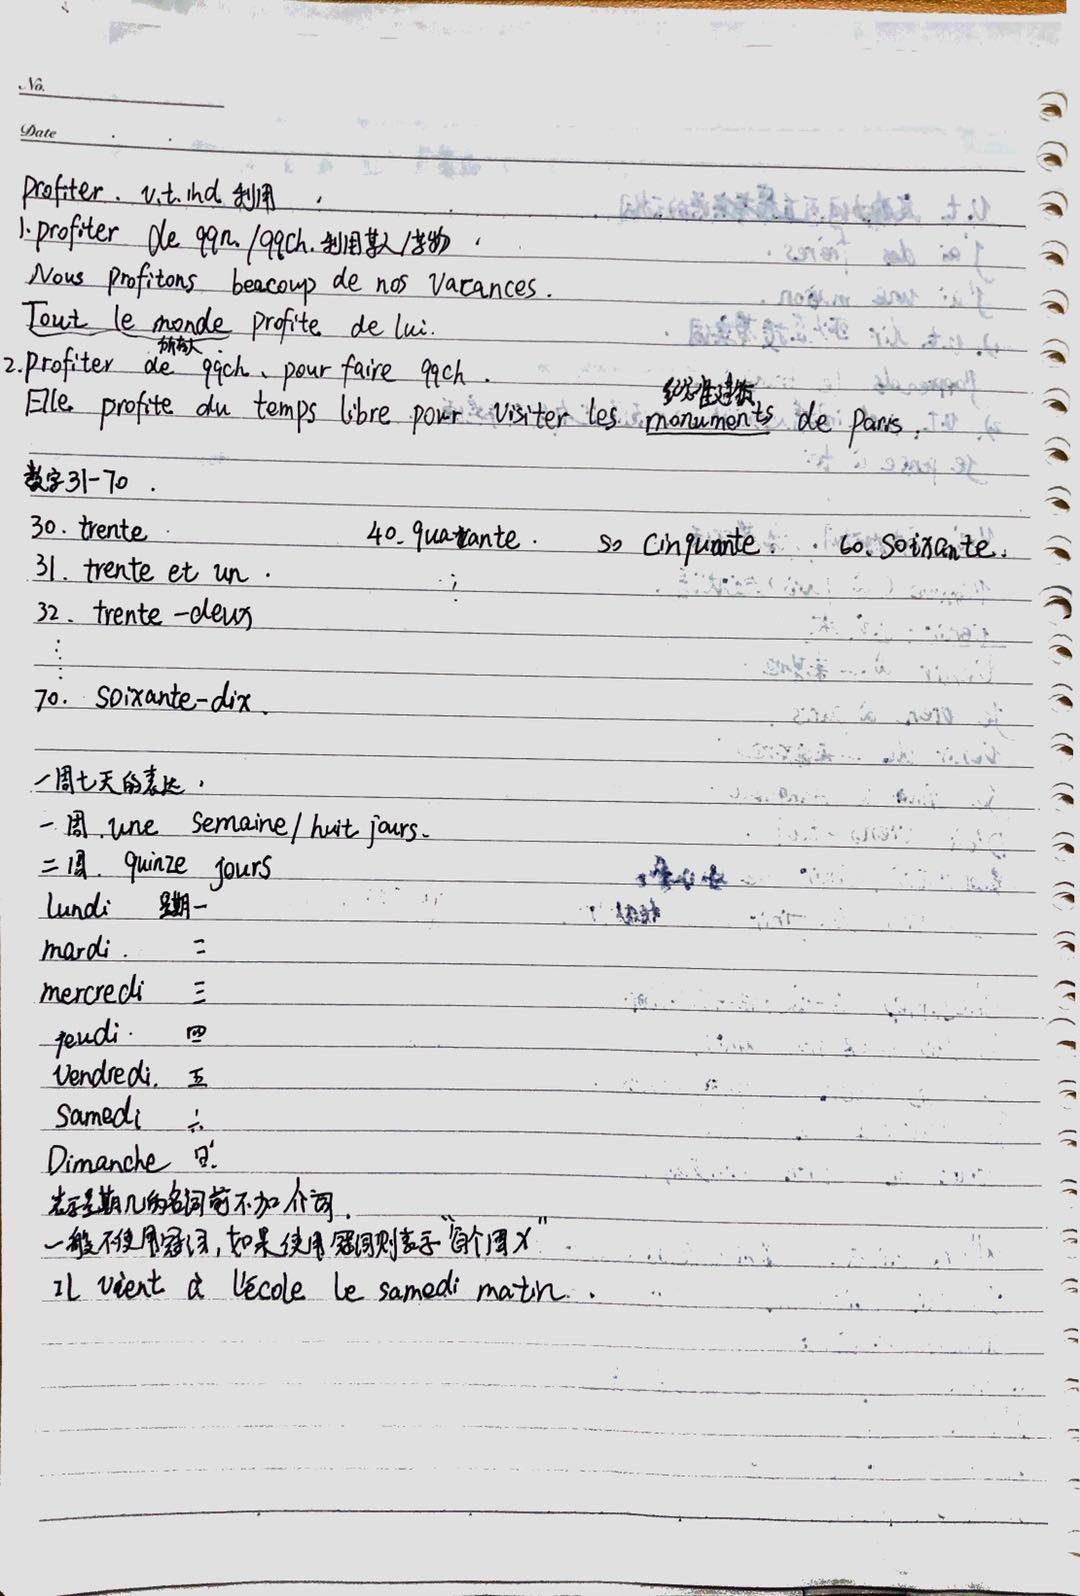 No.
Date
profiter. v.t.ind 利用
1. profiter de qqn. /qqch. 利用某人/某物
Nous profitons beacoup de nos vacances.
Tout le monde profite de lui.
所有人
2. profiter de qqch、pour faire qqch.
纪念性建筑
Elle profite du temps libre pour visiter les monuments de Paris.
数字31-70.
30. trente 40. quarante. 50 cinquante. 60. soixante.
31. trente et un.
32. trente-deux
70. soixante-dix.
一周七天的表达.
一周. une semaine/huit jours.
二周. quinze jours
lundi 星期一
mardi. 二
mercredi 三
jeudi. 四
Vendredi. 五
Samedi 六
Dimanche 日.
表示星期几的名词前不加介词.
一般不使用冠词, 如果使用冠词则表示“每个周X”
Il vient à l'école le samedi matin.